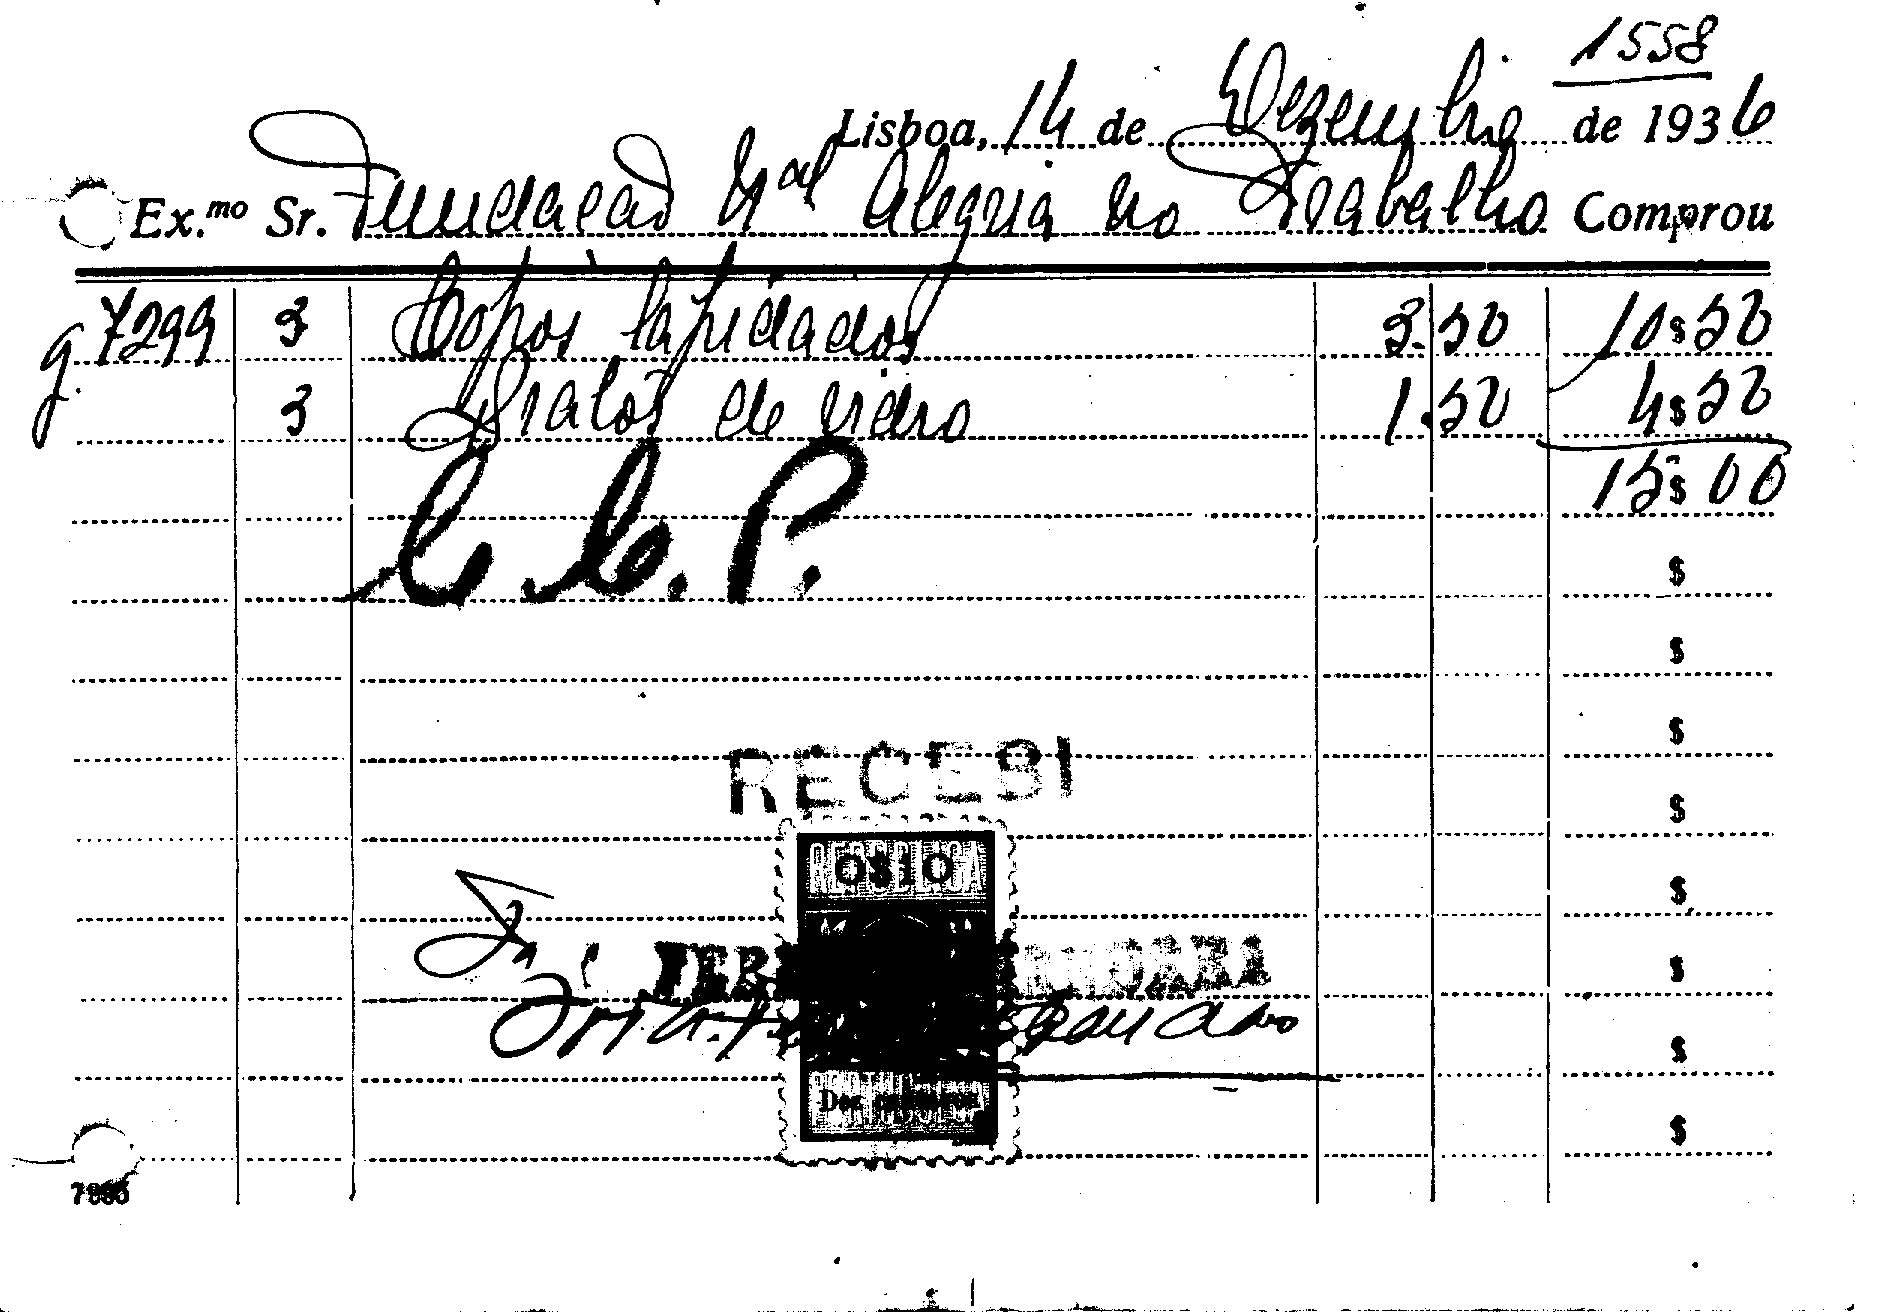 1558
Lisboa, 14 de Dezembro de 1936
Ex.mo Sr. Fundação N.al Alegria no Trabalho Comprou
g. 7299 3 Copos lapidados 3.50 10$50
3 Pratos de vidro 1.50 4$50
15$00
C. C. P.
$
$
$
$
$
$
$
$
RECEBI
REPUBLICA
0$10
Dez centavos